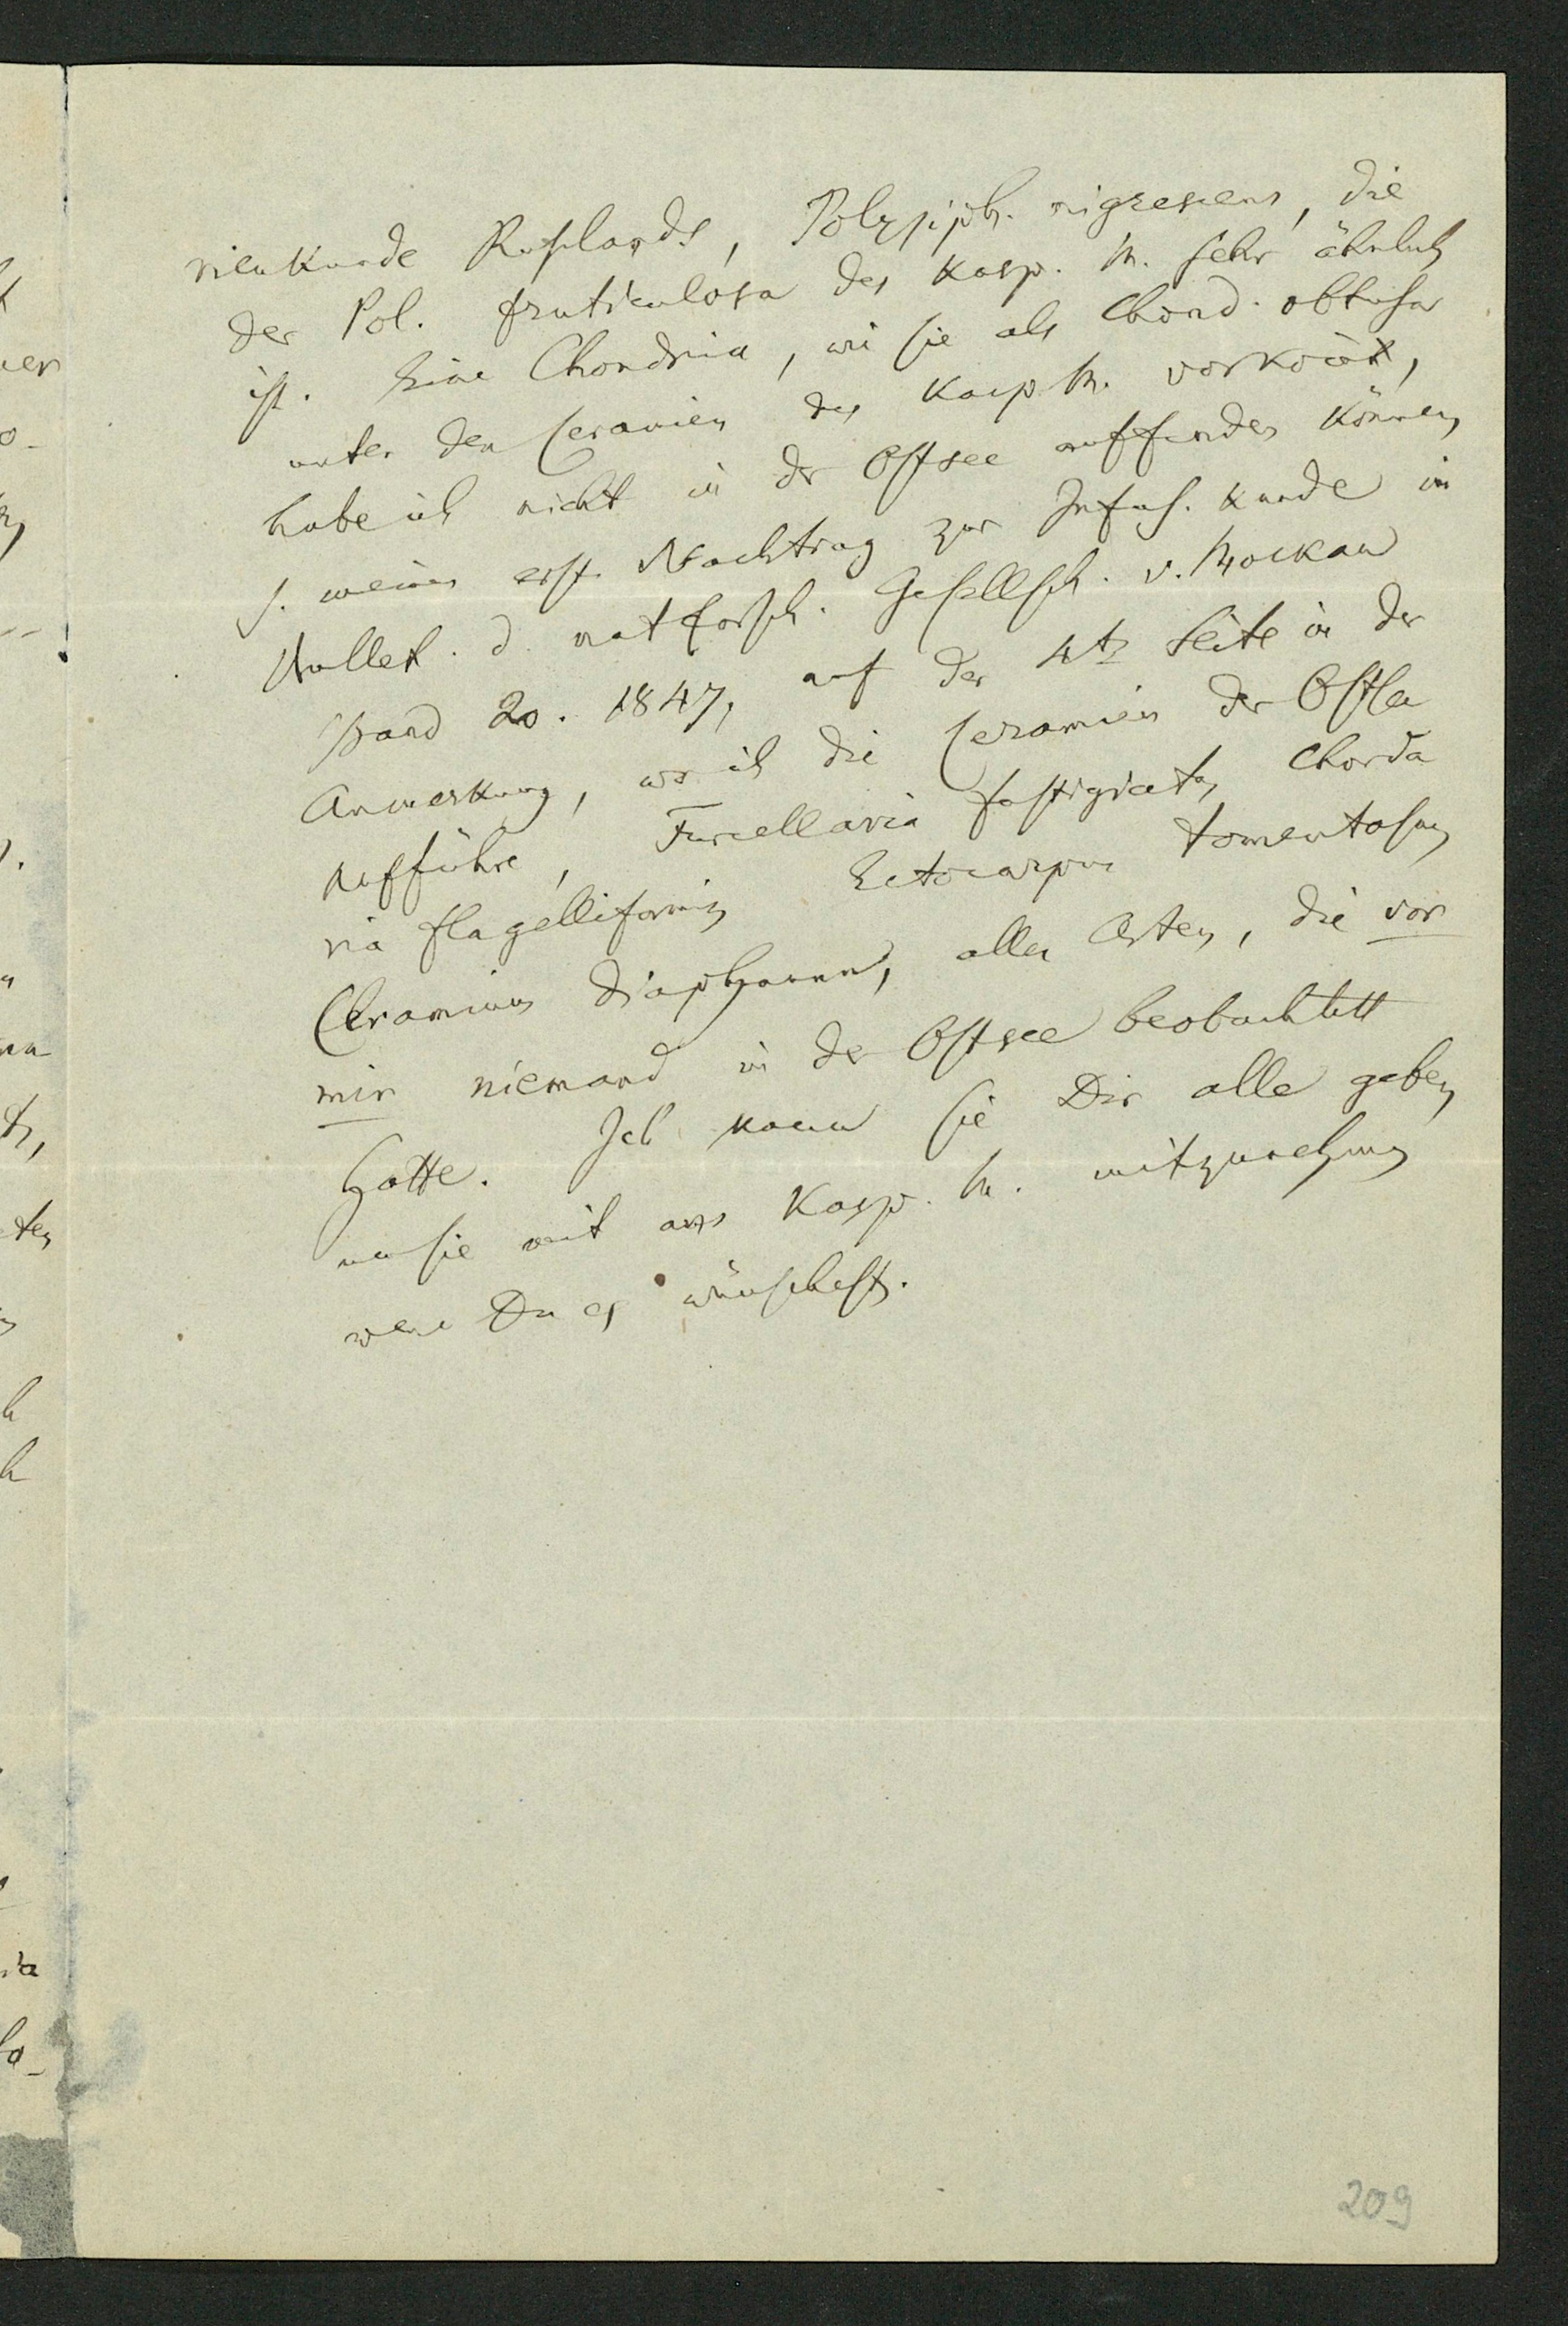 rienkunde Rußlands, Polysiph. nigrescens, die
der Pol. fruticulosa des Kasp. M. sehr ähnlich
ist. Eine Chondria, wie sie als Chond. obtusa
unter den Ceramien des Kasp M. vorkom̅t,
habe ich nicht in der Ostsee auffinden können,
s. meinen erst. Nachtrag zur Infus. kunde im
Bullet. d. natforsch. Gesellsch. v. Moskau
Band 20. 1847, auf der 4ten Seite in der
Anmerkung, wo ich die Ceramien der Ostsee
aufführe, Furcellaria fastigiata, Chorda
ria flagelliformis Ectocarpus tomentosus,
Ceramium diaphanum, alles Arten, die vor
mir niemand in der Ostsee beobachtet
hatte. Ich kann sie Dir alle geben,
um sie mit ans Kasp. M. mitzunehmen
wenn Du es wünschest.
209